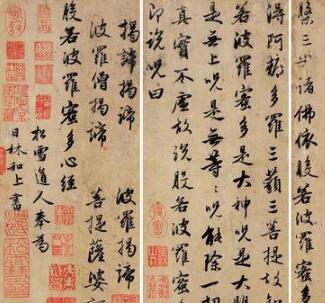 槃三世諸佛依般若波羅蜜多
得阿耨多羅三藐三菩提故知
若波羅蜜多是大神呪是大明
是無上呪是無等〻呪能除一切
真實不虛故說般若波羅蜜
即說呪曰
揭諦揭諦　波羅揭諦
波羅僧揭諦　菩提薩婆
般若波羅蜜多心經
松雪道人奉為
日林和上書